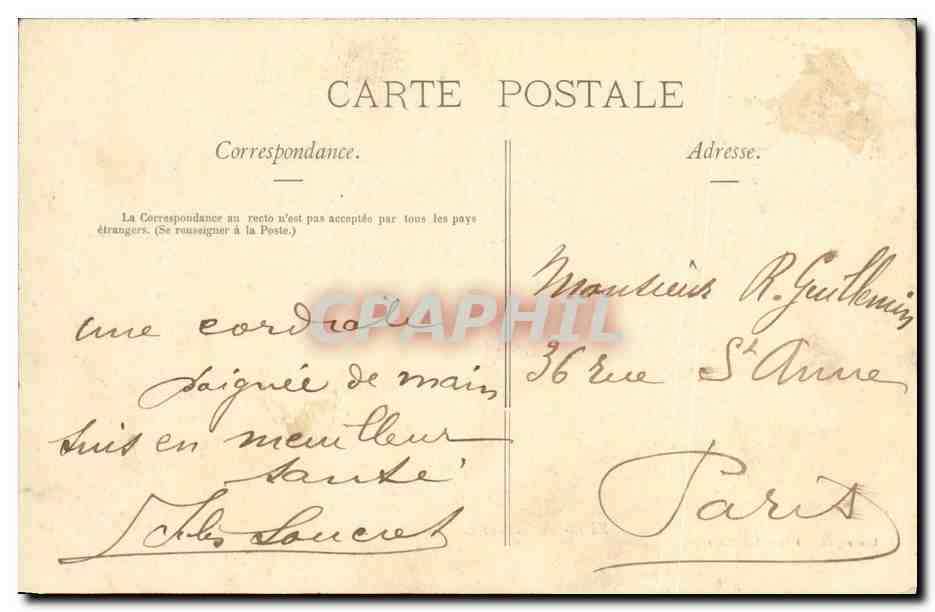 CARTE POSTALE
Correspondance.
La Correspondance au recto n'est pas acceptée par tous les pays
étrangers. (Se renseigner à la Poste.)
une cordiale
poignée de main
suis en meuilleur
santé
Adresse.
Monsieur R. Guillemin
36 rue St Anne
Paris
CPAPHIL